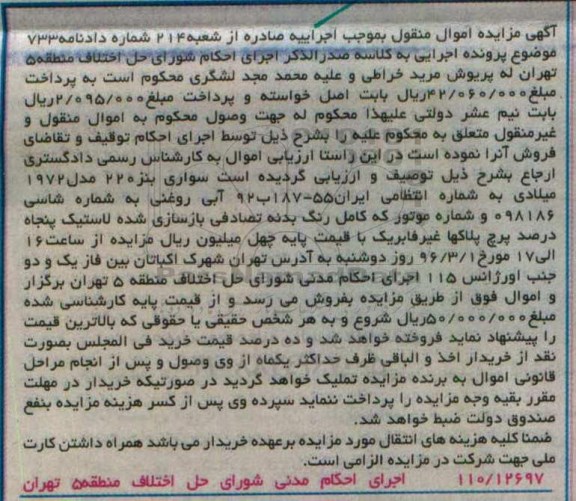 آگهی مزایده اموال منقول بموجب اجراییه صادره از شعبه۲۱۴ شماره دادنامه۷۳۳
موضوع پرونده اجرایی به کلاسه صدرالذکر اجرای احکام شورای حل اختلاف منطقه۵
تهران له پریوش مرید خراطی و علیه محمد مجد لشگری محکوم است به پرداخت
مبلغ۴۲/۰۶۰/۰۰۰ریال بابت اصل خواسته و پرداخت مبلغ۲/۰۹۵/۰۰۰ریال
بابت نیم عشر دولتی علیهذا محکوم له جهت وصول محکوم به اموال منقول و
غیرمنقول متعلق به محکوم علیه را بشرح ذیل توسط اجرای احکام توقیف و تقاضای
فروش آنرا نموده است در این راستا ارزیابی اموال به کارشناس رسمی دادگستری
ارجاع بشرح ذیل توصیف و ارزیابی گردیده است سواری بنز۲۲۰ مدل۱۹۷۲
میلادی به شماره انتظامی ایران۵۵-۱۸۷ب۹۲ آبی روغنی به شماره شاسی
۰۹۸۱۸۶ و شماره موتور که کامل رنگ بدنه تصادفی بازسازی شده لاستیک پنجاه
درصد پرچ پلاکها غیرفابریک با قیمت پایه چهل میلیون ریال مزایده از ساعت۱۶
الی۱۷ مورخ۹۶/۳/۱ روز دوشنبه به آدرس تهران شهرک اکباتان بین فاز یک و دو
جنب اورژانس ۱۱۵ اجرای احکام مدنی شورای حل اختلاف منطقه ۵ تهران برگزار
و اموال فوق از طریق مزایده بفروش می رسد و از قیمت پایه کارشناسی شده
مبلغ۵۰/۰۰۰/۰۰۰ریال شروع و به هر شخص حقیقی یا حقوقی که بالاترین قیمت
را پیشنهاد نماید فروخته خواهد شد و ده درصد قیمت خرید فی المجلس بصورت
نقد از خریدار اخذ و الباقی ظرف حداکثر یکماه از وی وصول و پس از انجام مراحل
قانونی اموال به برنده مزایده تملیک خواهد گردید در صورتیکه خریدار در مهلت
مقرر بقیه وجه مزایده را پرداخت ننماید سپرده وی پس از کسر هزینه مزایده بنفع
صندوق دولت ضبط خواهد شد.
ضمنا کلیه هزینه های انتقال مورد مزایده برعهده خریدار می باشد همراه داشتن کارت
ملی جهت شرکت در مزایده الزامی است.
۱۱۰/۱۲۶۹۷ اجرای احکام مدنی شورای حل اختلاف منطقه۵ تهران